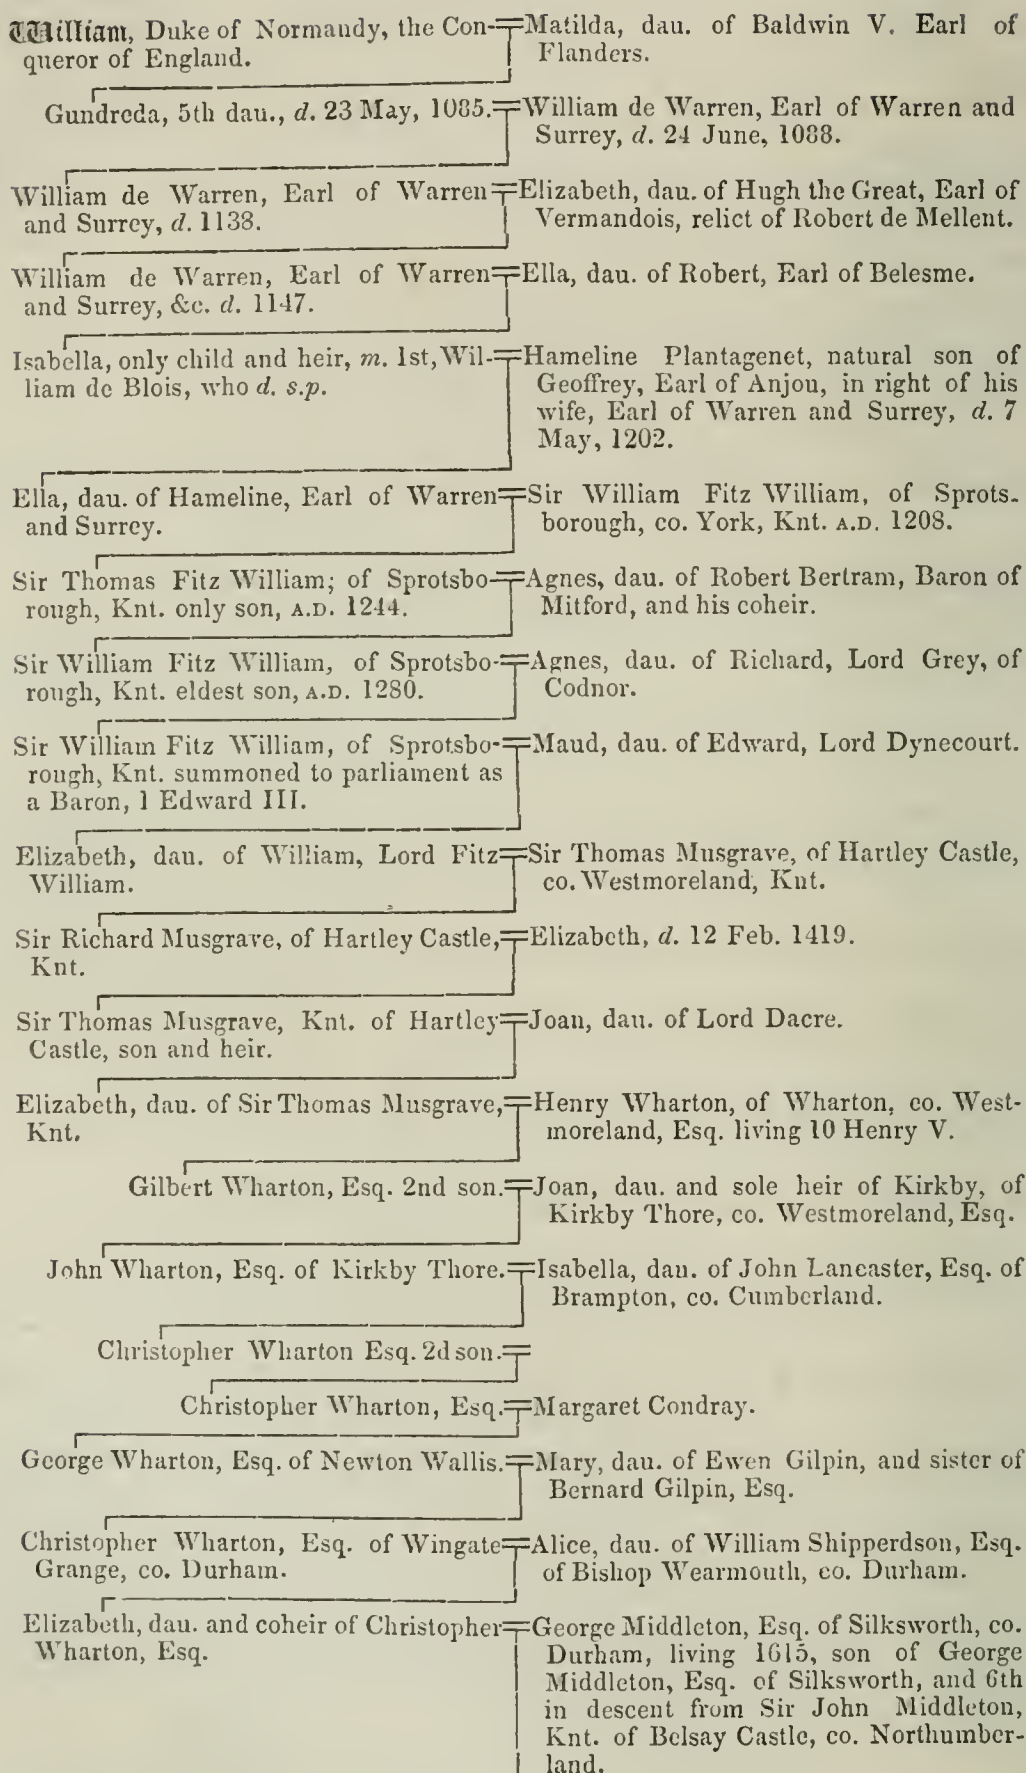 William, Duke of Normandy, the Con-
queror of England.
Matilda, dau. of Baldwin V. Earl of
Flanders.
Gundreda, 5th dau., d. 23 May, 1085.
William de Warren, Earl of Warren and
Surrey, d. 24 June, 1088.
William de Warren, Earl of Warren
and Surrey, d. 1138.
Elizabeth, dau. of Hugh the Great, Earl of
Vermandois, relict of Robert de Mellent.
William de Warren, Earl of Warren
and Surrey, &c. d. 1147.
Ella, dau. of Robert, Earl of Belesme.
Isabella, only child and heir, m. 1st, Wil-
liam de Blois, who d. s.p.
Hameline Plantagenet, natural son of
Geoffrey, Earl of Anjou, in right of his
wife, Earl of Warren and Surrey, d. 7
May, 1202.
Ella, dau. of Hameline, Earl of Warren
and Surrey.
Sir William Fitz William, of Sprots-
borough, co. York, Knt. A.D. 1208.
Sir Thomas Fitz William; of Sprotsbo-
rough, Knt. only son, A.D. 1244.
Agnes, dau. of Robert Bertram, Baron of
Mitford, and his coheir.
Sir William Fitz William, of Sprotsbo-
rough, Knt. eldest son, A.D. 1280.
Agnes, dau. of Richard, Lord Grey, of
Codnor.
Sir William Fitz William, of Sprotsbo-
rough, Knt. summoned to parliament as
a Baron, 1 Edward III.
Maud, dau. of Edward, Lord Dynecourt.
Elizabeth, dau. of William, Lord Fitz
William.
Sir Thomas Musgrave, of Hartley Castle,
co. Westmoreland, Knt.
Sir Richard Musgrave, of Hartley Castle,
Knt.
Elizabeth, d. 12 Feb. 1419.
Sir Thomas Musgrave, Knt. of Hartley
Castle, son and heir.
Joan, dau. of Lord Dacre.
Elizabeth, dau. of Sir Thomas Musgrave,
Knt.
Henry Wharton, of Wharton, co. West-
moreland, Esq. living 10 Henry V.
Gilbert Wharton, Esq. 2nd son.
Joan, dau. and sole heir of Kirkby, of
Kirkby Thore, co. Westmoreland, Esq.
John Wharton, Esq. of Kirkby Thore.
Isabella, dau. of John Lancaster, Esq. of
Brampton, co. Cumberland.
Christopher Wharton Esq. 2d son.
Christopher Wharton, Esq.
Margaret Condray.
George Wharton, Esq. of Newton Wallis.
Mary, dau. of Ewen Gilpin, and sister of
Bernard Gilpin, Esq.
Christopher Wharton, Esq. of Wingate
Grange, co. Durham.
Alice, dau. of William Shipperdson, Esq.
of Bishop Wearmouth, co. Durham.
Elizabeth, dau. and coheir of Christopher
Wharton, Esq.
George Middleton, Esq. of Silksworth, co.
Durham, living 1615, son of George
Middleton, Esq. of Silksworth, and 6th
in descent from Sir John Middleton,
Knt. of Belsay Castle, co. Northumber-
land.